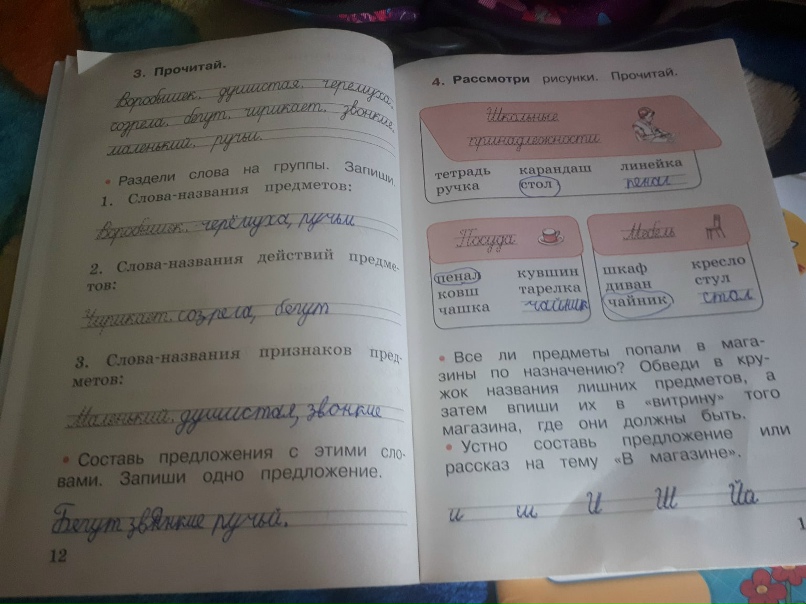 3. Прочитай.
Воробышек, душистая, черёмуха,
созрела, бегут, чирикает, звонкие,
маленький, ручьи.
• Раздели слова на группы. Запиши.
1. Слова-названия предметов:
Воробышек, черёмуха, ручьи
2. Слова-названия действий предме-
тов:
Чирикает, созрела, бегут
3. Слова-названия признаков пред-
метов:
Маленький, душистая, звонкие
• Составь предложения с этими сло-
вами. Запиши одно предложение.
Бегут звонкие ручьи.
12
4. Рассмотри рисунки. Прочитай.
Школьные
принадлежности
тетрадь карандаш линейка
ручка стол пенал
Посуда
пенал кувшин
ковш тарелка
чашка чайник
Мебель
шкаф кресло
диван стул
чайник стол
• Все ли предметы попали в мага-
зины по назначению? Обведи в кру-
жок названия лишних предметов, а
затем впиши их в «витрину» того
магазина, где они должны быть.
• Устно составь предложение или
рассказ на тему «В магазине».
и ш И Ш Йа
1